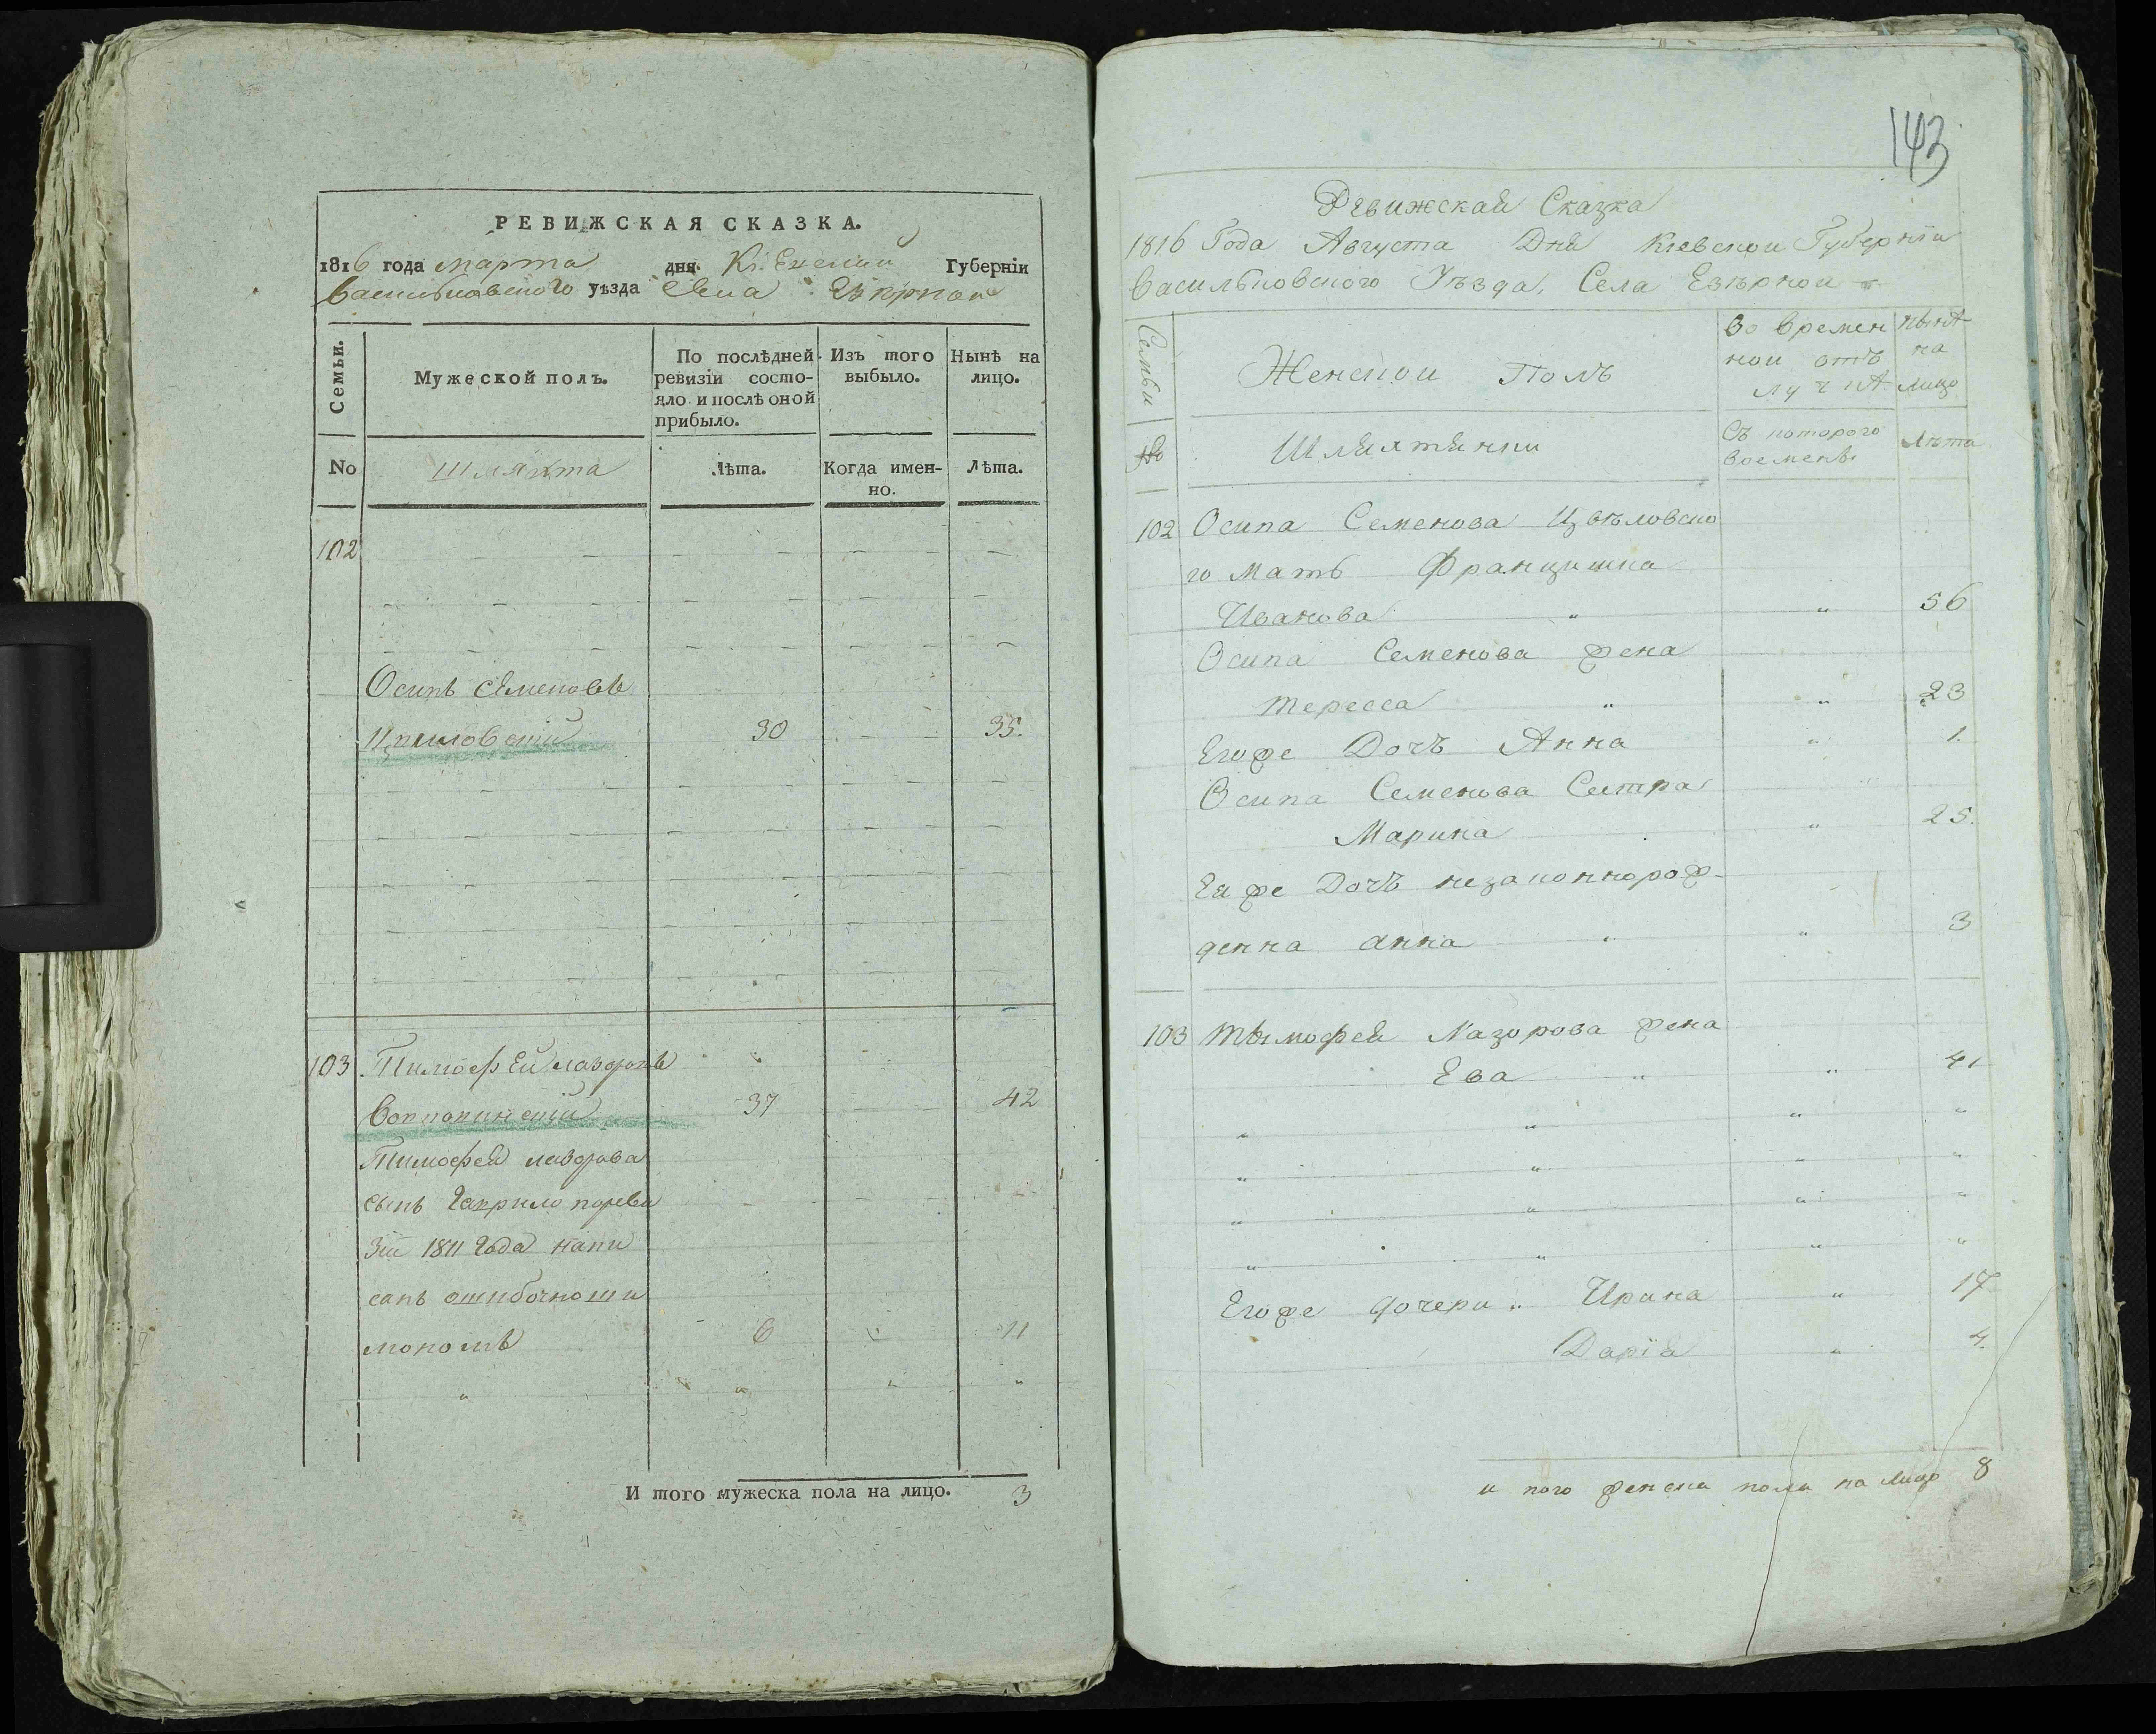 РЕВИЖСКАЯ СКАЗКА.
1816 года марта дня. Губерніи
уѣзда
Семьи.
Мужеской полъ.
По послѣдней ревизіи состояло и послѣ оной прибыло.
Изъ того выбыло.
Нынѣ на лицо.
No
шляхта
Лѣта.
Когда именно.
Лѣта.
102
Осипъ Семеновъ
30 35.
103 Тимофей
37 42
Тимофея
сынъ Гаврило
зіи 1811 года напи
санъ ошибочно
6 11
И того мужеска пола на лицо. 3
143
Ревижская Сказка
1816 Года Августа Дня Кіевской Губерніи
Васильковского Уѣзда, Села Езѣрной
Семьи
Женской Полъ
Во времен
ной отъ
лучкѣ
нынѣ
на
лицо
No
Шляхтянки
Съ которого
времены
лѣта
102 Осипа Семенова Цвѣловско
го мать Францишка
Иванова 56
Осипа Семенова жена
Тересса 23
Егоже Дочъ Анна 1.
Осипа Семенова Сестра
Марина 25.
Ея же Дочъ незаконнорож-
денна анна 3
103 Тымофея Лазорова жена
Ева 41
Егоже дочери Ирина 17
Дарія 4.
и того женска пола на лицо 8